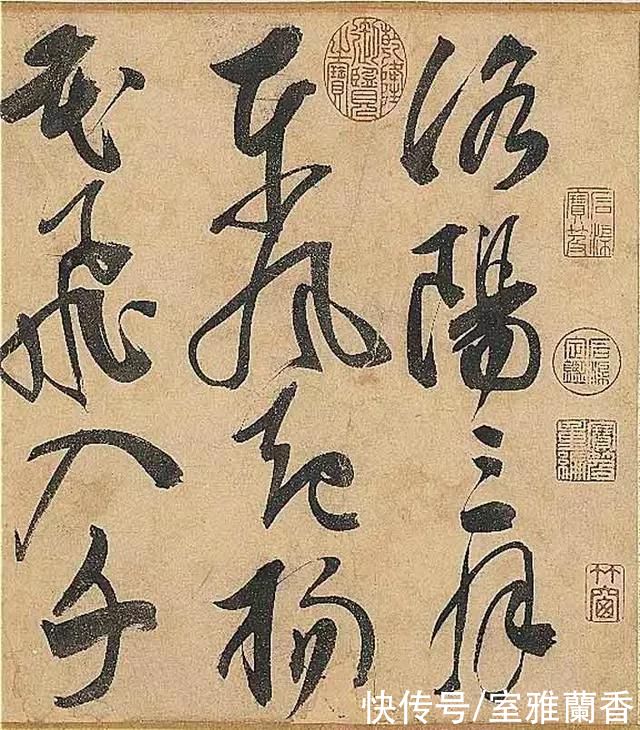 洛陽三
東風起楊
花飛入千
乾隆御覽之寶
石渠寶笈
石渠定鑑
寶笈重編
竹窗
快传号/室雅蘭香